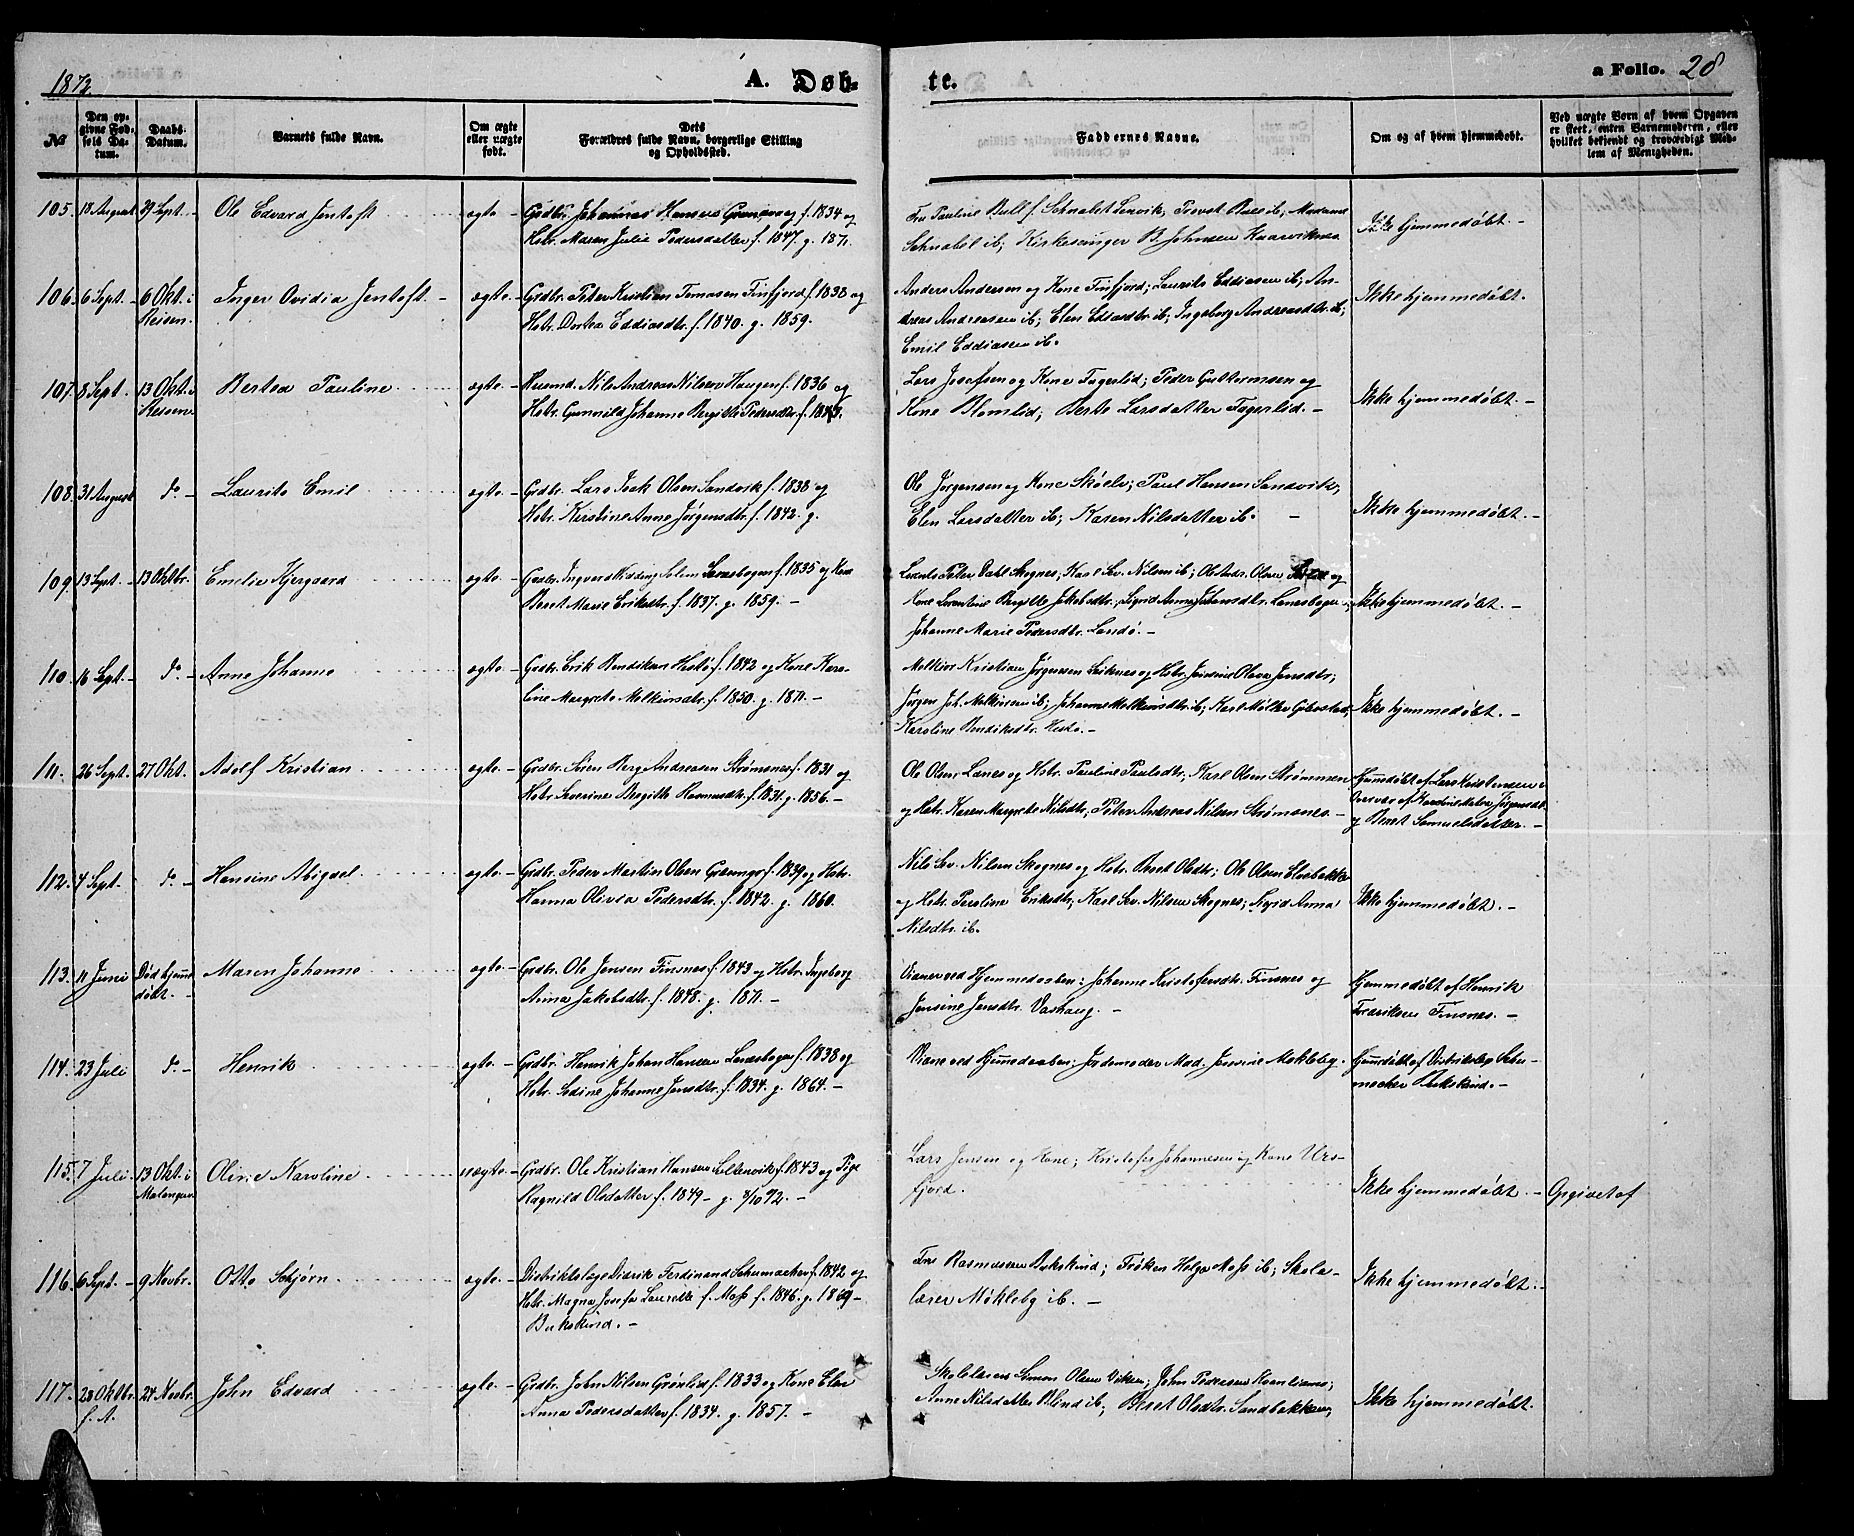 1872.
A. Døb-
te.
a Folio. 28
№
Den op-
givne Fød-
sels Da-
tum.
Daabs-
Datum.
Barnets fulde Navn.
Om ægte
eller uægte
født.
Dets
Forældres fulde Navn, borgerlige Stilling
og Opholdssted.
Faddernes Navne.
Om og af hvem hjemmedøbt.
Ved uægte Børn af hvem Opgaven
er skeet, enten Barnemoderen, eller
hvilket bekjendt og troværdigt Med-
lem af Menigheden.
105. 18 August 29 Sept. Ole Edvard Jentoft ægte.
Grdbr. Johannes Hansen f. 1834 og
Hstr. Maren Julie Pedersdatter f. 1847. g. 1871.
Fru Pauline Bull f. Schnabel Lenvik; Provst Bull ib; Madame
Schnabel ib; Kirkesanger B. Johnsen
Ikke hjemmedøbt.
106. 6 Sept. 6 Okt. i
Reisen.
Inger Ovidia Jentoft ægte.
Grdbr. Peter Kristian Tomasen Finfjord f. 1838 og
Hstr. Eddiasdtr. f. 1840. g. 1859.
Anders Andersen og Kone Finfjord; Laurits Eddiasen ib; An-
dreas Andreasen ib; Elen Eddiasdtr. ib; Ingeborg Andreasdtr. ib;
Emil Eddiassen ib.
Ikke hjemmedøbt.
107. 8 Sept. 13 Okt. i
Reisen
Bertea Pauline ægte.
Husmd. Nils Andreas Nilsen Haugen f. 1836 og
Hstr. Gunnild Johanne Bergitte Pedersdtr. f.
Lars Josefsen og Kone Fagerlid; Peder Guttormsen og
Kone Blomlid; Berte Larsdatter Fagerlid.
Ikke hjemmedøbt.
108. 31 August do Laurits Emil ægte.
Grdbr. Lars Olsen Sandvik f. 1838 og
Hstr. Kirstine Anne Jørgensdtr. f. 1842. g.
Ole Jørgensen og Kone Skøelv; Paul Hansen Sandvik;
Elen Larsdatter ib; Karen Nilsdatter ib.
Ikke hjemmedøbt.
109. 13 Sept. 13 Oktbr. Emelie Kjergaard ægte.
Grdbr. Ingvard Widding Solem Lanesbogen f. 1835 og Kone
Beret Marie Eriksdtr. f. 1837. g. 1859.
Lorents Peter Dahl Skognes; Karl Sev. Nilsen ib; Ole Andr. Olsen og
Kone Lorentine Bergitte Jakobsdtr.; Sigrid Anna Johansdtr. Lanesbogen;
Johanne Marie Pedersdtr. Sandø.
Ikke hjemmedøbt.
110. 16 Sept. do Anne Johanne ægte.
Grdbr. Erik Bendiksen Hestø f. 1842 og Kone Karo-
line Margrete Melkiorsdtr. f. 1850. g. 1871.
Melkior Kristian Jørgensen Leiknes og Hstr. Olava Jensdtr;
Jørgen Joh. Melkiorsen ib; Johanne Melkiorsdtr. ib; Karl Møller Gibostad;
Karoline Bendiksdtr. Hestø.
Ikke hjemmedøbt.
111. 26 Sept. 27 Okt. Adolf Kristian ægte.
Grdbr. Sören Berg Andreasen Strømsnes f. 1831 og
Hstr. Severine Bergitte Rasmusdtr. f. 1831. g. 1856.
Ole Olsen Lanes og Hstr. Pauline Paulsdtr; Karl Olsen Strømmen
og Hstr. Karen Margrete Nilsdtr; Peter Andreas Nilsen Strømsnes.
Hjemmedøbt af Lars Kristensen i
Overvær af Hendrikdatea Jørgensdtr.
og Beret Samuelsdatter.
112. 4 Sept. do Hansine Abigael ægte.
Grdbr. Peder Martin Olsen f. 1839 og Hstr.
Hanna Olivia Pedersdtr. f. 1842. g. 1860.
Nils Sev. Nilsen Skognes og Hstr. Beret Olsdtr; Ole Olsen
og Hstr. Pauline Eriksdtr; Karl Sev. Nilsen Skognes; Sigrid Anna
Nilsdtr. ib.
Ikke hjemmedøbt.
113. 11 Juni Død hjemme
døbt.
Maren Johanne ægte.
Grdbr. Ole Jensen Finsnes f. 1843 og Hstr. Ingeborg
Anna Jakobsdtr. f. 1848. g. 1871.
Vidner ved Hjemmedaaben: Johanne Kristofersdtr. Finsnes og
Jensine Jensdtr. Vashaug.
Hjemmedøbt af Henrik
Fredriksen Finsnes.
114. 23 Juli do Henrik ægte.
Grdbr. Henrik Johan Hansen Lanesbogen f. 1838 og
Hstr. Sedine Johanne Jensdtr. f. 1834. g. 1864.
Vidne ved Hjemmedaaben: Jordemoder Mad. Jensine Møkleby.
Hjemmedøbt af Distriktslæge Schu-
macher Bukskind.
115. 7 Juli 13 Okt. i
Malangen
Oline Karoline uægte.
Grdbr. Ole Kristian Hansen f. 1843 og Pige
Ragnild Olsdatter f. 1849 g. 8/10 72.
Lars Jensen og Kone; Kristofer Johannesen og Kone Urs-
fjord.
Ikke hjemmedøbt. Opgivet af
116. 6 Sept. 9 Novbr. Otto Schjørn ægte.
Distriktslæge Didrik Ferdinand Schumacher f. 1842 og
Hstr. Magna Josefa Laurette f. Moss f. 1846. g. 1869
Bukskind.
Fru Rasmussen Bukskind; Frøken Helga Moss ib; Skole-
lærer Møkleby ib.
Ikke hjemmedøbt.
117. 28 Oktbr.
f. A.
24 Novbr. John Edvard ægte.
Grdbr. John Nilsen Grønlid f. 1833 og Kone Elen
Anna Pedersdatter f. 1834. g. 1857.
Skolelærer Simon Olsen Viken; John Pedersen Kvanliams;
Anne Nilsdatter ib; Beret Olsdtr. Sandbakken;
Ikke hjemmedøbt.